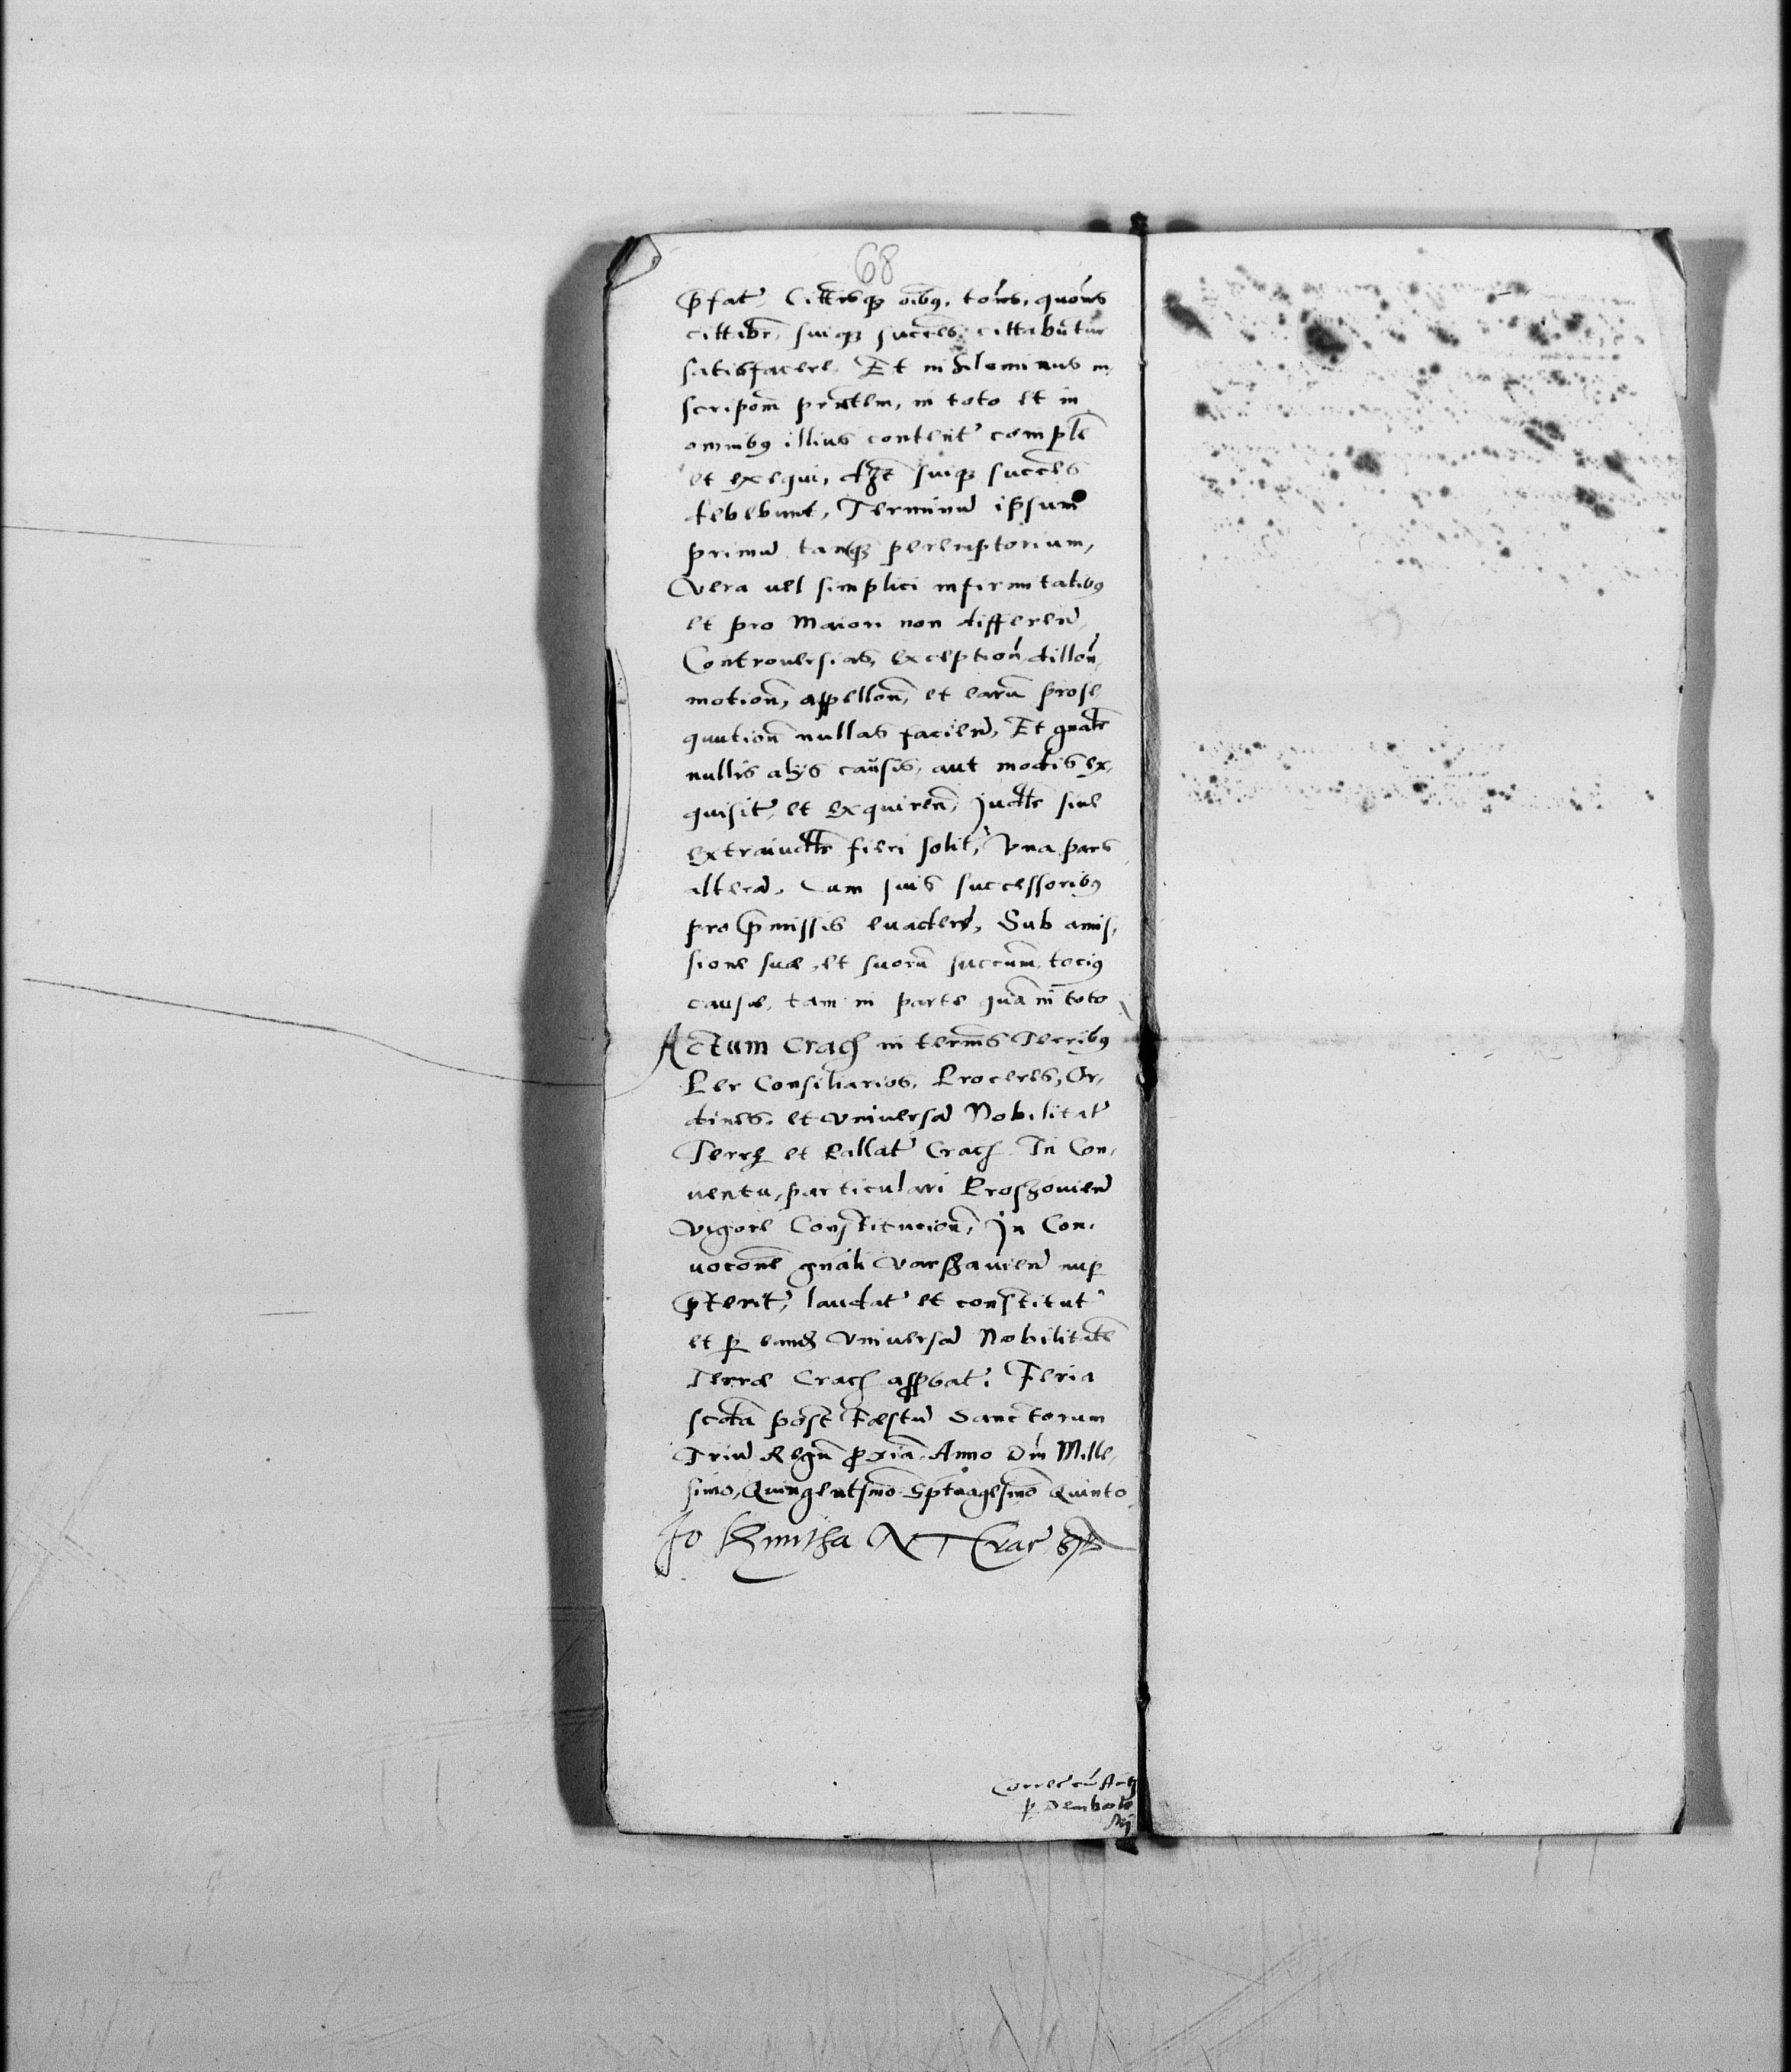 68
p̄fat', Citterisq̨ oībꝰ, totīes, quotīes
cittabr̄, suiq̨ succ̄es cittabuntur
satisfacere. Et nihilominus in
scripōm prn̄tem, in toto et in
omnibꝰ illius content' complē
et exequi, suiq̨ succ̄es
debebunt, Terminū ipsum
primū tanq̨ peremptorium,
Vera uel simplici infirmitatibꝰ
et pro Maiori non differen̄,
Controuersias, exceptioń, dillon̄,
motion̄, appellon̄, et earū prose
qutution̄ nullas facien̄, Et gn̄alr̄
nullis alijs causis, aut modis ex,
quisit', et exquiren̄, Judlr̄ siue
extraiudlr̄ fieri solit', Vna pars
alterā. Cum suis successoribꝰ
pro p̄missis euadere, Sub amis,
sione suæ, et suorū succum̄, tociꝰ
causæ, tam in parte quā in toto
Actum Crac̄ in termīs Terribꝰ
Per Consiliarios, Proceres, Or,
dines, et Vniuersā Nobilitat'
Terrę et Pallat' Crac̄ In Con,
uentu, particulari Proszouien̄
Vigore Constitucion̄, In Con,
uocōne gn̄ali Varschauien̄ nup̱
p̄terit', laudat' et constitut'
et p̱ eand̄ Vniuersā Nobilitatē
Terræ Crac̄ app̱bat'. Feria
scdā post Fæstū Sanctorum
Triū Regū p̱xiā. Anno Dn̄i Mille,
simo, Quingentsmō Sptuagesmō Quinto
Jo Kmitha N T Crac̄ sst
Correc̄ cū Actis
p̱ Dembow